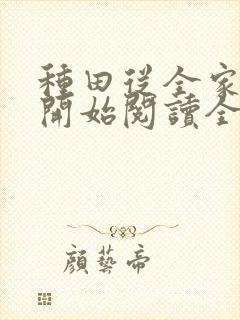 種田從全家
開始閱讀全
顏藝帝